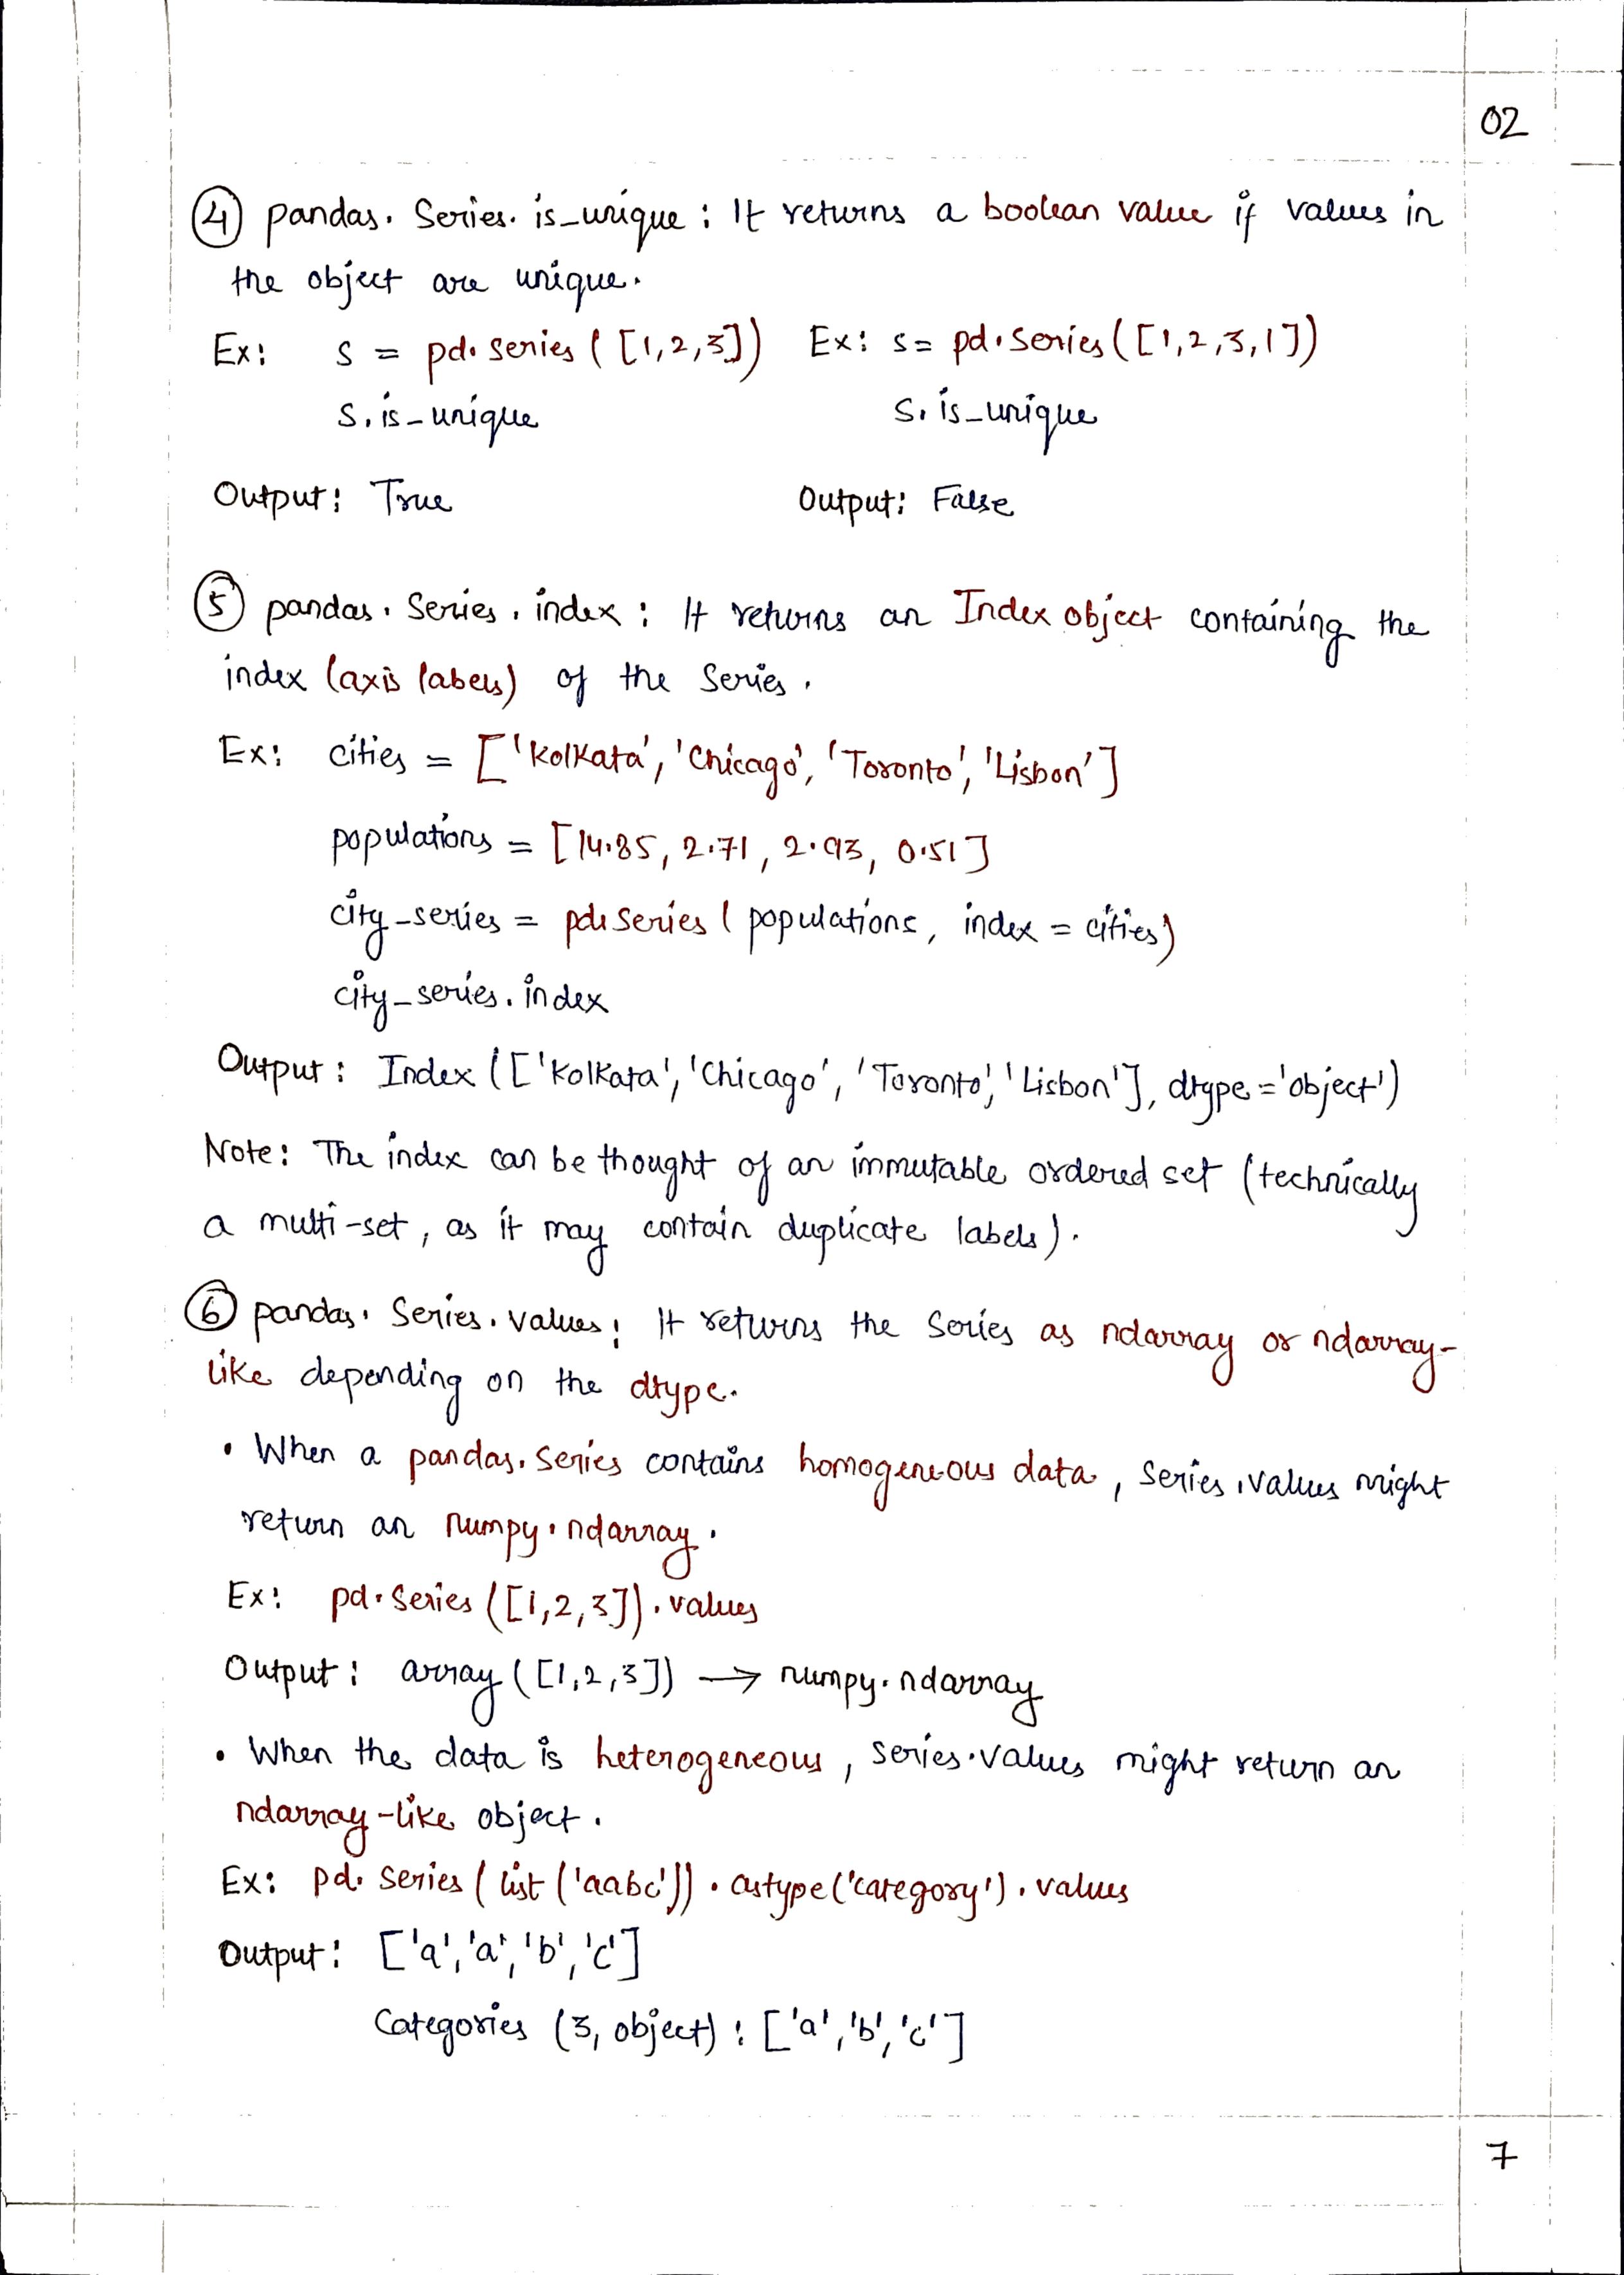 02
④ pandas. Series. is_unique : It returns a boolean value if values in
the object are unique.
Ex: s = pd. series ( [1,2,3]) Ex: s = pd. series ([1,2,3,1])
s. is_unique s. is_unique
Output: True Output: False
⑤ pandas. Series. index : It returns an Index object containing the
index (axis labels) of the Series.
Ex: cities = ['Kolkata', 'Chicago', 'Toronto', 'Lisbon']
populations = [14.85, 2.71, 2.93, 0.51]
city_series = pd. series ( populations, index = cities)
city_series. index
Output : Index (['Kolkata', 'Chicago', 'Toronto', 'Lisbon'], dtype = 'object')
Note: The index can be thought of an immutable ordered set (technically
a multi-set, as it may contain duplicate labels).
⑥ pandas. Series. values : It returns the Series as ndarray or ndarray-
like depending on the dtype.
• When a pandas. series contains homogeneous data, series.values might
return an numpy.ndarray.
Ex: pd. series ([1,2,3]). values
Output : array ([1,2,3]) → numpy.ndarray
• When the data is heterogeneous, series.values might return an
ndarray-like object.
Ex: pd. series ( list ('aabc')). astype('category'). values
Output: ['a', 'a', 'b', 'c']
Categories (3, object) : ['a', 'b', 'c']
7